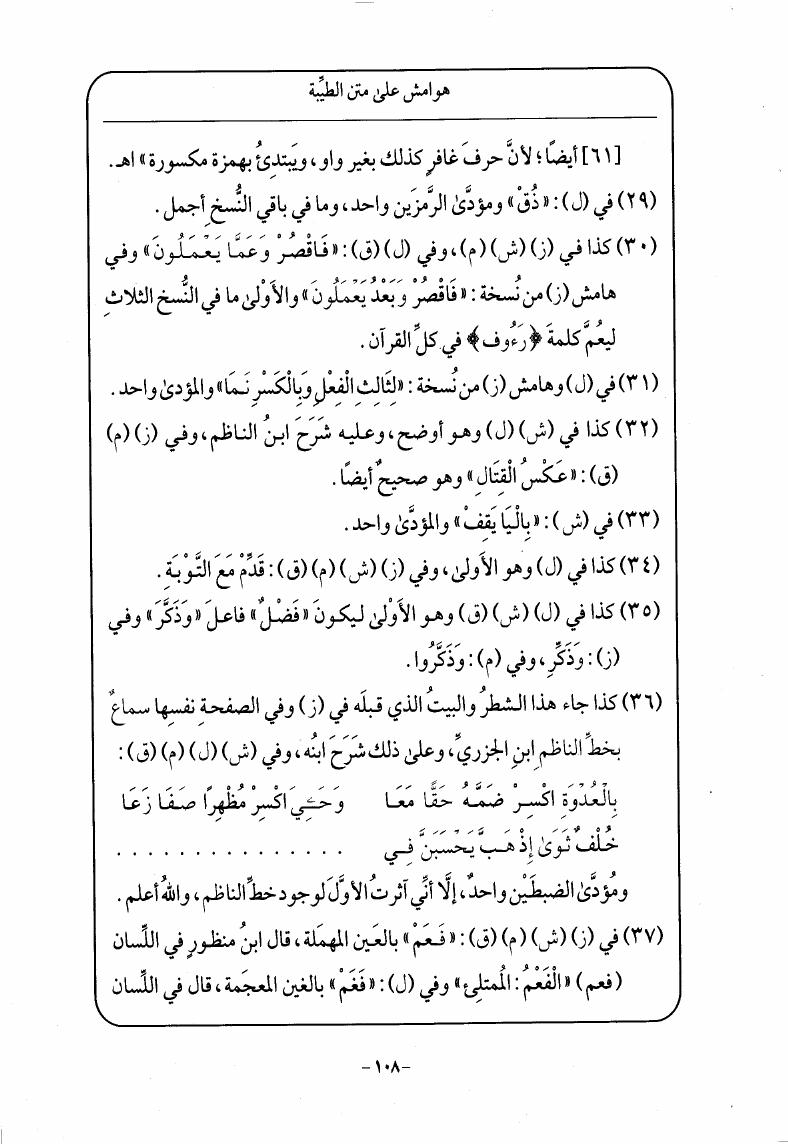 هوامش على متن الطيِّبة
[٦١] أيضًا؛ لأنَّ حرفَ غافرٍ كذلك بغير واو، ويَبتدئُ بهمزة مكسورة» اهـ.
(٢٩) في (ل): «ذُقْ» ومؤدَّىٰ الرمْزَين واحد، وما في باقي النُّسخِ أجمل.
(٣٠) كذا في (ز) (ش) (م)، وفي (ل) (ق): «فَاقْصُرْ وَعَمَّا يَعْمَلُونَ» وفي
هامش (ز) من نُسخة: «فَاقْصُرْ وَبَعْدُ يَعْمَلُونَ» والأَوْلىٰ ما في النُّسخ الثلاثِ
ليعُمَّ كلمةَ ﴿رَءُوف﴾ في كلِّ القرآن.
(٣١) في (ل) وهامش (ز) من نُسخة: «لِثَالِثِ الْفِعْلِ وَبِالْكَسْرِ نَمَا» والمؤدىٰ واحد.
(٣٢) كذا في (ش) (ل) وهو أوضح، وعليه شَرَحَ ابنُ الناظم، وفي (ز) (م)
(ق): «عَكْسُ الْقِتَالِ» وهو صحيحٌ أيضًا.
(٣٣) في (ش): «بِالْيَا يَقِفْ» والمؤدىٰ واحد.
(٣٤) كذا في (ل) وهو الأولىٰ، وفي (ز) (ش) (م) (ق): قَدِّمْ مَعَ التَّوْبَةِ.
(٣٥) كذا في (ل) (ش) (ق) وهو الأَوْلىٰ ليكونَ «فَضْلٌ» فاعلَ «وَذَكَّرَ» وفي
(ز): وَذَكِّرِ، وفي (م): وَذَكَّرُوا.
(٣٦) كذا جاء هذا الشطرُ والبيتُ الذي قبلَه في (ز) وفي الصفحةِ نفسِها سماعٌ
بخطِّ الناظمِ ابنِ الجزريِّ، وعلى ذلك شَرَحَ ابنُه، وفي (ش) (ل) (م) (ق):
بِالْعُدْوَةِ اكْسِرْ ضَمَّهُ حَقًّا مَعَا وَحَيِيَ اكْسِرْ مُظْهِرًا صَفَا زَعَا
خُلْفٌ ثَوَىٰ إِذْ هَبْ يَحْسَبَنَّ فِي . . . . . . . . . . . . . . .
ومُؤدَّىٰ الضبطَيْن واحدٌ، إلَّا أنّي آثرتُ الأوَّلَ لوجود خطِّ الناظم، واللهُ أعلم.
(٣٧) في (ز) (ش) (م) (ق): «فَعَمْ» بالعَين المهمَلة، قال ابنُ منظورٍ في اللِّسان
(فعم) «الْفَعْمُ: الْمُمتلِئ» وفي (ل): «فَغَمْ» بالغين المعجَمة، قال في اللِّسان
-١٠٨-